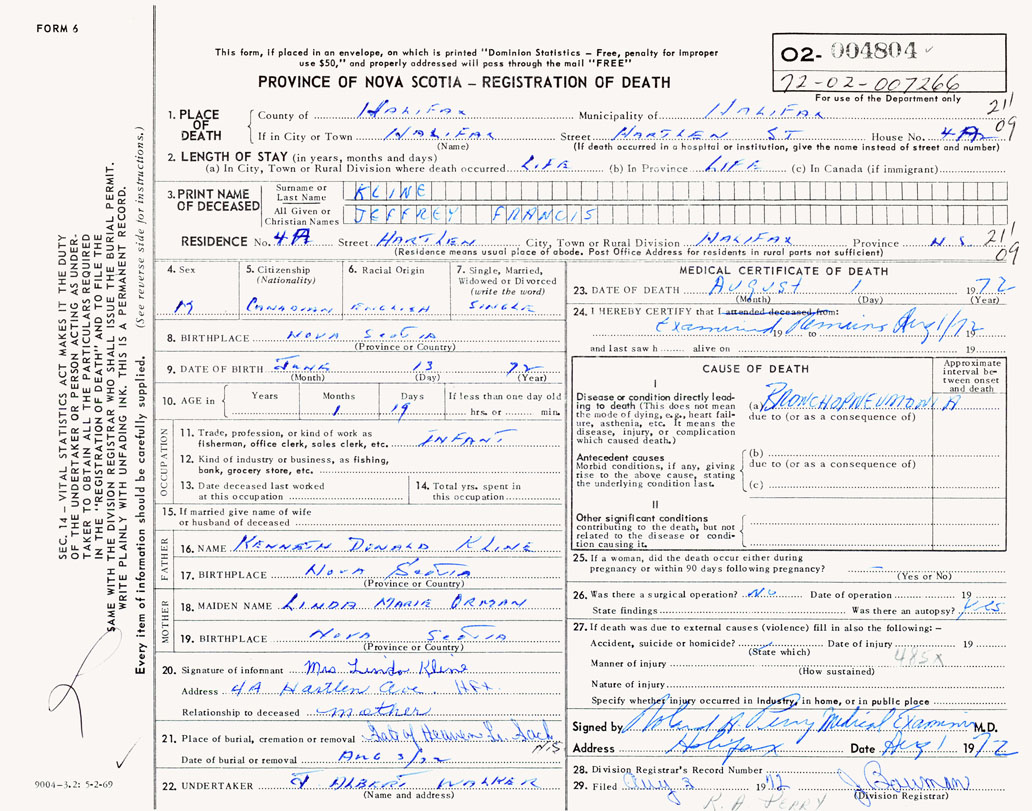 FORM 6
This form, if placed in an envelope, on which is printed "Dominion Statistics – Free, penalty for improper
use $50," and properly addressed will pass through the mail "FREE"
PROVINCE OF NOVA SCOTIA – REGISTRATION OF DEATH
02- 004804
72-02-007266
For use of the Department only
211
09
1. PLACE OF DEATH
County of HALIFAX Municipality of HALIFAX
If in City or Town HALIFAX Street HARTLEN ST House No. 4A
(Name) (If death occurred in a hospital or institution, give the name instead of street and number)
2. LENGTH OF STAY (in years, months and days)
(a) In City, Town or Rural Division where death occurred LIFE (b) In Province LIFE (c) In Canada (if immigrant)
3. PRINT NAME OF DECEASED
Surname or Last Name KLINE
All Given or Christian Names JEFFREY FRANCIS
RESIDENCE No. 4A Street HARTLEN City, Town or Rural Division HALIFAX Province N.S. 211
09
(Residence means usual place of abode. Post Office Address for residents in rural parts not sufficient)
4. Sex
M
5. Citizenship
(Nationality)
CANADIAN
6. Racial Origin
ENGLISH
7. Single, Married,
Widowed or Divorced
(write the word)
SINGLE
8. BIRTHPLACE NOVA SCOTIA
(Province or Country)
9. DATE OF BIRTH JUNE 13 72
(Month) (Day) (Year)
10. AGE in
Years Months Days If less than one day old
1 19 hrs. or min.
OCCUPATION
11. Trade, profession, or kind of work as
fisherman, office clerk, sales clerk, etc. INFANT
12. Kind of industry or business, as fishing,
bank, grocery store, etc.
13. Date deceased last worked
at this occupation
14. Total yrs. spent in
this occupation
15. If married give name of wife
or husband of deceased
FATHER
16. NAME KENNETH DONALD KLINE
17. BIRTHPLACE NOVA SCOTIA
(Province or Country)
MOTHER
18. MAIDEN NAME LINDA MARIE ORMAN
19. BIRTHPLACE NOVA SCOTIA
(Province or Country)
20. Signature of informant Mrs Linda Kline
Address 4A Hartlen Ave. Hfx.
Relationship to deceased mother
21. Place of burial, cremation or removal Gate of Heaven L. Sack
N.S
Date of burial or removal AUG 3/72
22. UNDERTAKER J ALBERT WALKER
(Name and address)
MEDICAL CERTIFICATE OF DEATH
23. DATE OF DEATH AUGUST 1 1972
(Month) (Day) (Year)
24. I HEREBY CERTIFY that I attended deceased from:
Examined 19 to Remains Aug 1/72 19
and last saw h alive on 19
CAUSE OF DEATH
Approximate
interval be-
tween onset
and death
I
Disease or condition directly lead-
ing to death (This does not mean
the mode of dying, e.g., heart fail-
ure, asthenia, etc. It means the
disease, injury, or complication
which caused death.)
(a) BRONCHOPNEUMONIA
due to (or as a consequence of)
Antecedent causes
Morbid conditions, if any, giving
rise to the above cause, stating
the underlying condition last.
(b)
due to (or as a consequence of)
(c)
II
Other significant conditions
contributing to the death, but not
related to the disease or condi-
tion causing it.
25. If a woman, did the death occur either during
pregnancy or within 90 days following pregnancy? –
(Yes or No)
26. Was there a surgical operation? No Date of operation 19
State findings Was there an autopsy? Yes
27. If death was due to external causes (violence) fill in also the following: –
Accident, suicide or homicide? Date of injury 19
(State which) 485X
Manner of injury
(How sustained)
Nature of injury
Specify whether injury occurred in Industry, in home, or in public place
Signed by Roland A. Perry Medical Examiner M.D.
Address Halifax Date Aug 1 1972
28. Division Registrar's Record Number
29. Filed Aug 3 1972 J. Bowman
(Division Registrar)
R. A. PERRY
SEC. 14 – VITAL STATISTICS ACT MAKES IT THE DUTY
OF THE UNDERTAKER OR PERSON ACTING AS UNDER-
TAKER TO OBTAIN ALL THE PARTICULARS REQUIRED
IN THE "REGISTRATION OF DEATH" AND TO FILE THE
SAME WITH THE DIVISION REGISTRAR WHO SHALL ISSUE THE BURIAL PERMIT.
WRITE PLAINLY WITH UNFADING INK. THIS IS A PERMANENT RECORD.
Every item of information should be carefully supplied. (See reverse side for instructions.)
9004-3.2: 5-2-69